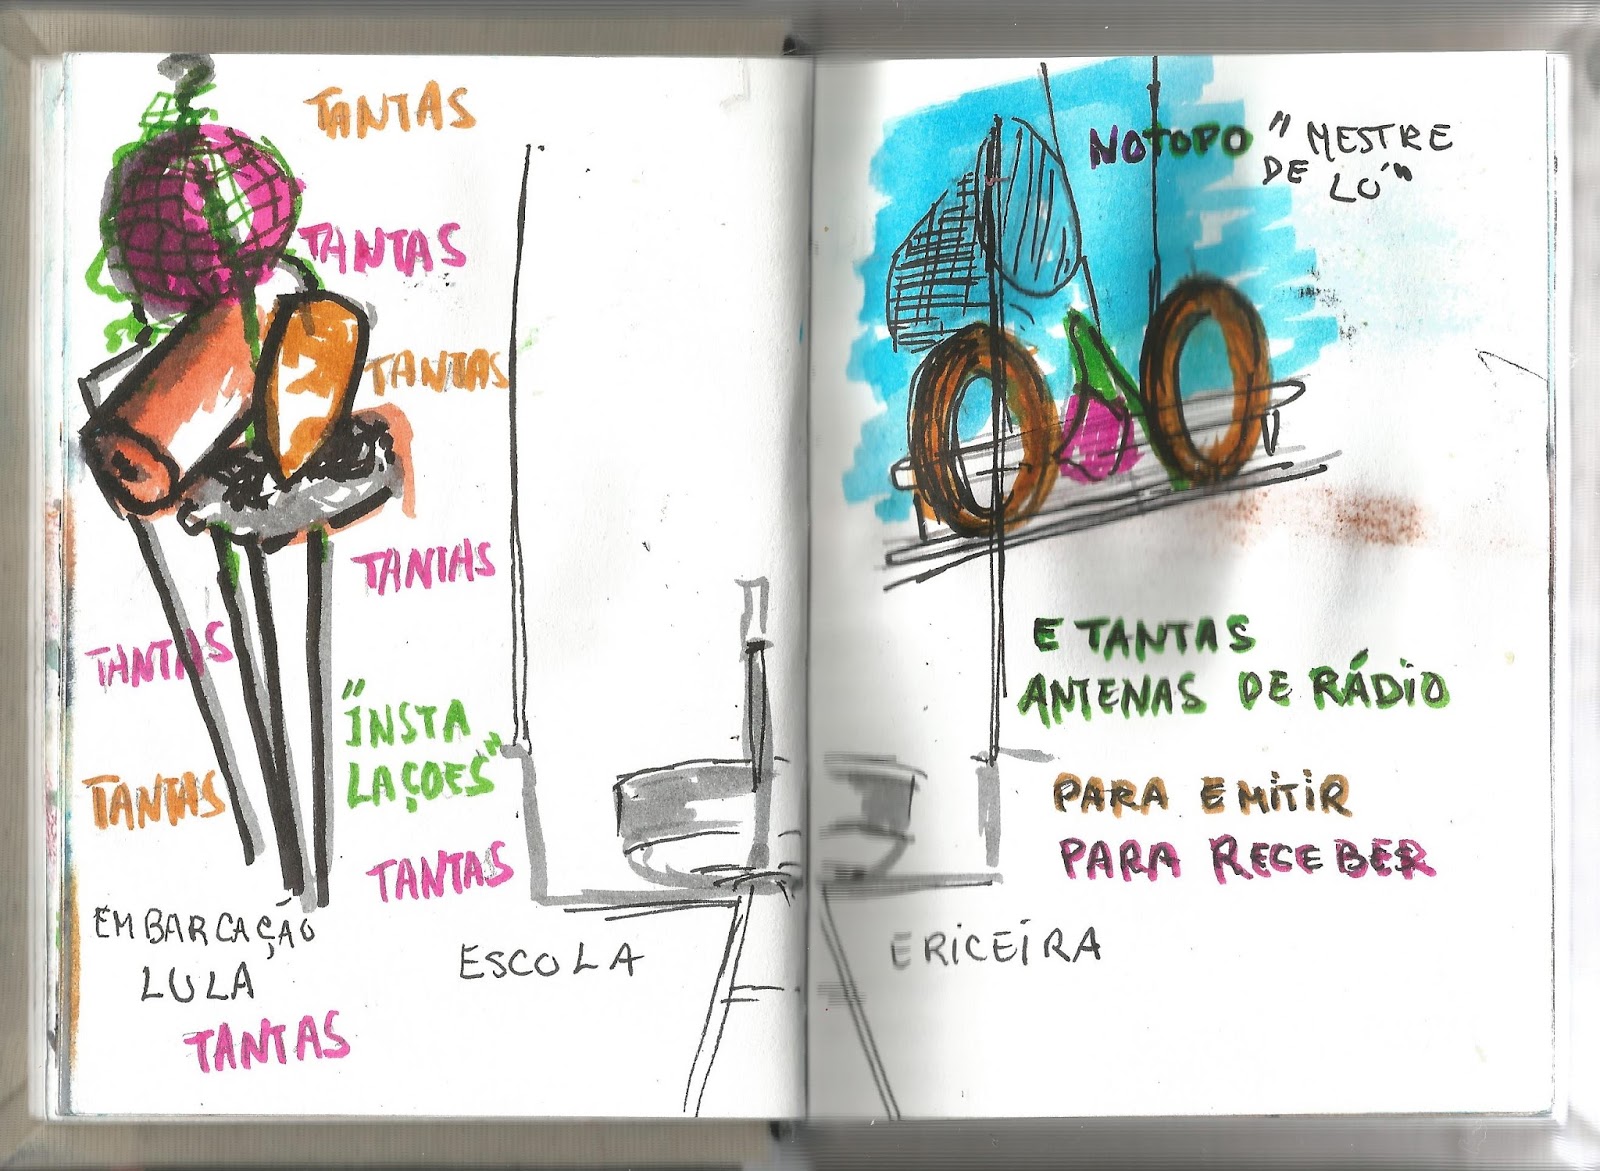 TANTAS
TANTAS
TANTAS
TANTAS
TANTAS
"INSTA
LAÇOES"
TANTAS
TANTAS
EMBARCAÇÃO
LULA
TANTAS
ESCOLA
NO TOPO "MESTRE
DE LÓ"
E TANTAS
ANTENAS DE RÁDIO
PARA EMITIR
PARA RECEBER
ERICEIRA